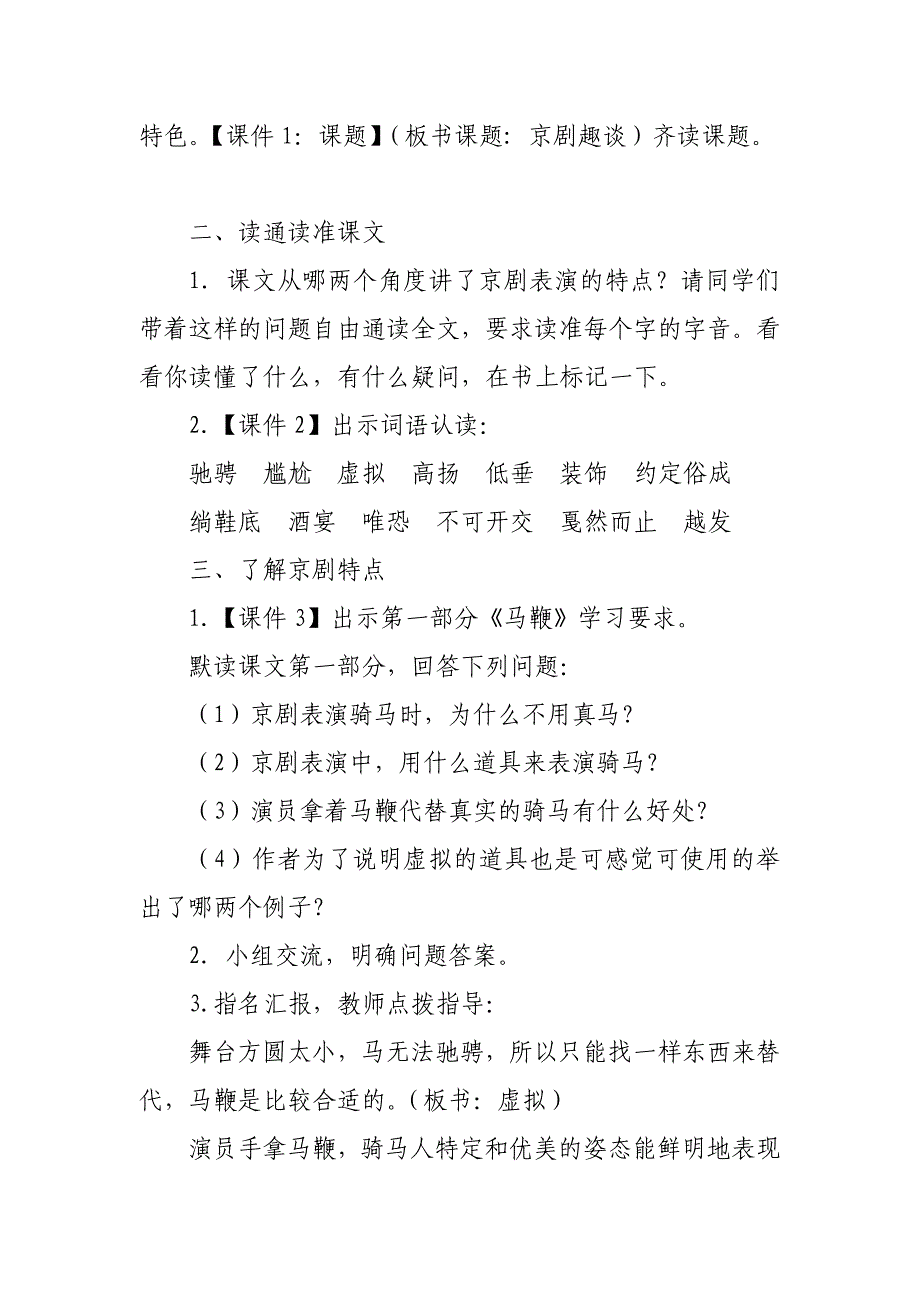 特色。【课件 1：课题】（板书课题：京剧趣谈）齐读课题。
二、读通读准课文
1. 课文从哪两个角度讲了京剧表演的特点？请同学们
带着这样的问题自由通读全文，要求读准每个字的字音。看
看你读懂了什么，有什么疑问，在书上标记一下。
2.【课件 2】出示词语认读：
驰骋 尴尬 虚拟 高扬 低垂 装饰 约定俗成
绱鞋底 酒宴 唯恐 不可开交 戛然而止 越发
三、了解京剧特点
1.【课件 3】出示第一部分《马鞭》学习要求。
默读课文第一部分，回答下列问题：
（1）京剧表演骑马时，为什么不用真马？
（2）京剧表演中，用什么道具来表演骑马？
（3）演员拿着马鞭代替真实的骑马有什么好处？
（4）作者为了说明虚拟的道具也是可感觉可使用的举
出了哪两个例子？
2. 小组交流，明确问题答案。
3.指名汇报，教师点拨指导：
舞台方圆太小，马无法驰骋，所以只能找一样东西来替
代，马鞭是比较合适的。（板书：虚拟）
演员手拿马鞭，骑马人特定和优美的姿态能鲜明地表现